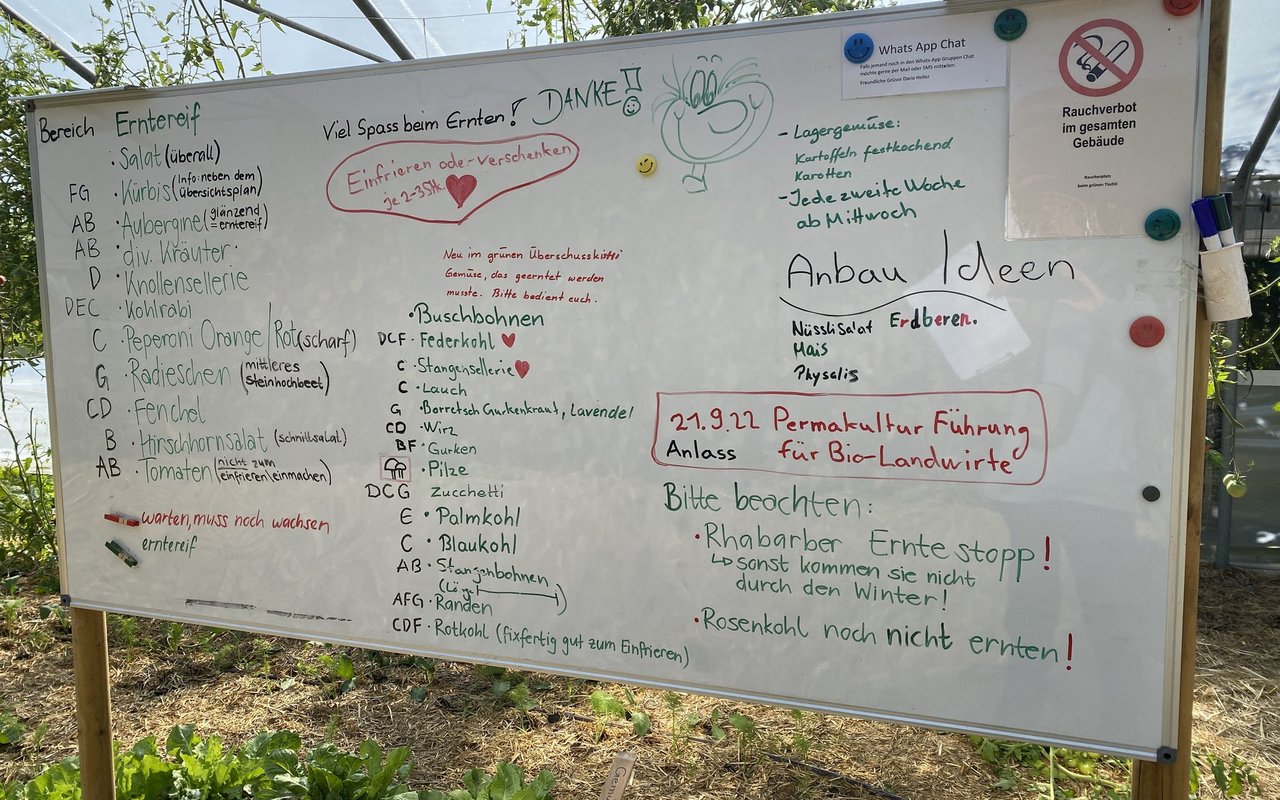 Bereich Erntereif
· Salat (überall)
FG · Kürbis (Info: neben dem übersichtsplan)
AB · Aubergine (glänzend = erntereif)
AB · div. Kräuter ·
D · Knollensellerie
DEC · Kohlrabi
C · Peperoni Orange/Rot (scharf)
G · Radieschen (mittleres steinhochbeet)
CD · Fenchel
B · Hirschhornsalat (schnittsalat)
AB · Tomaten (nicht zum einfrieren\einmachen)
warten, muss noch wachsen
erntereif
Viel Spass beim Ernten! DANKE!
Einfrieren oder verschenken
je 2-3 Stk.
Neu im grünen Überschusskistli
Gemüse, das geerntet werden
musste. Bitte bedient euch.
· Buschbohnen
DCF · Federkohl
C · Stangensellerie
C · Lauch
G · Borretsch Gurkenkraut, Lavendel
CD · Wirz
BF · Gurken
· Pilze
DCG Zucchetti
E · Palmkohl
C · Blaukohl
AB · Stangenbohnen
AFG · Randen
CDF · Rotkohl (fixfertig gut zum Einfrieren)
Whats App Chat
Falls jemand noch in den Whats-App Gruppen Chat
möchte gerne per Mail oder SMS mitteilen
Freundliche Grüsse Dario Heller
Rauchverbot
im gesamten
Gebäude
Raucherplatz
beim grünen Tischli
- Lagergemüse:
Kartoffeln festkochend
Karotten
- Jede zweite Woche
ab Mittwoch
Anbau Ideen
Nüsslisalat Erdberen.
Mais
Physalis
21.9.22 Permakultur Führung
Anlass für Bio-Landwirte
Bitte beachten:
· Rhabarber Erntestopp!
↳ sonst kommen sie nicht
durch den Winter!
· Rosenkohl noch nicht ernten!